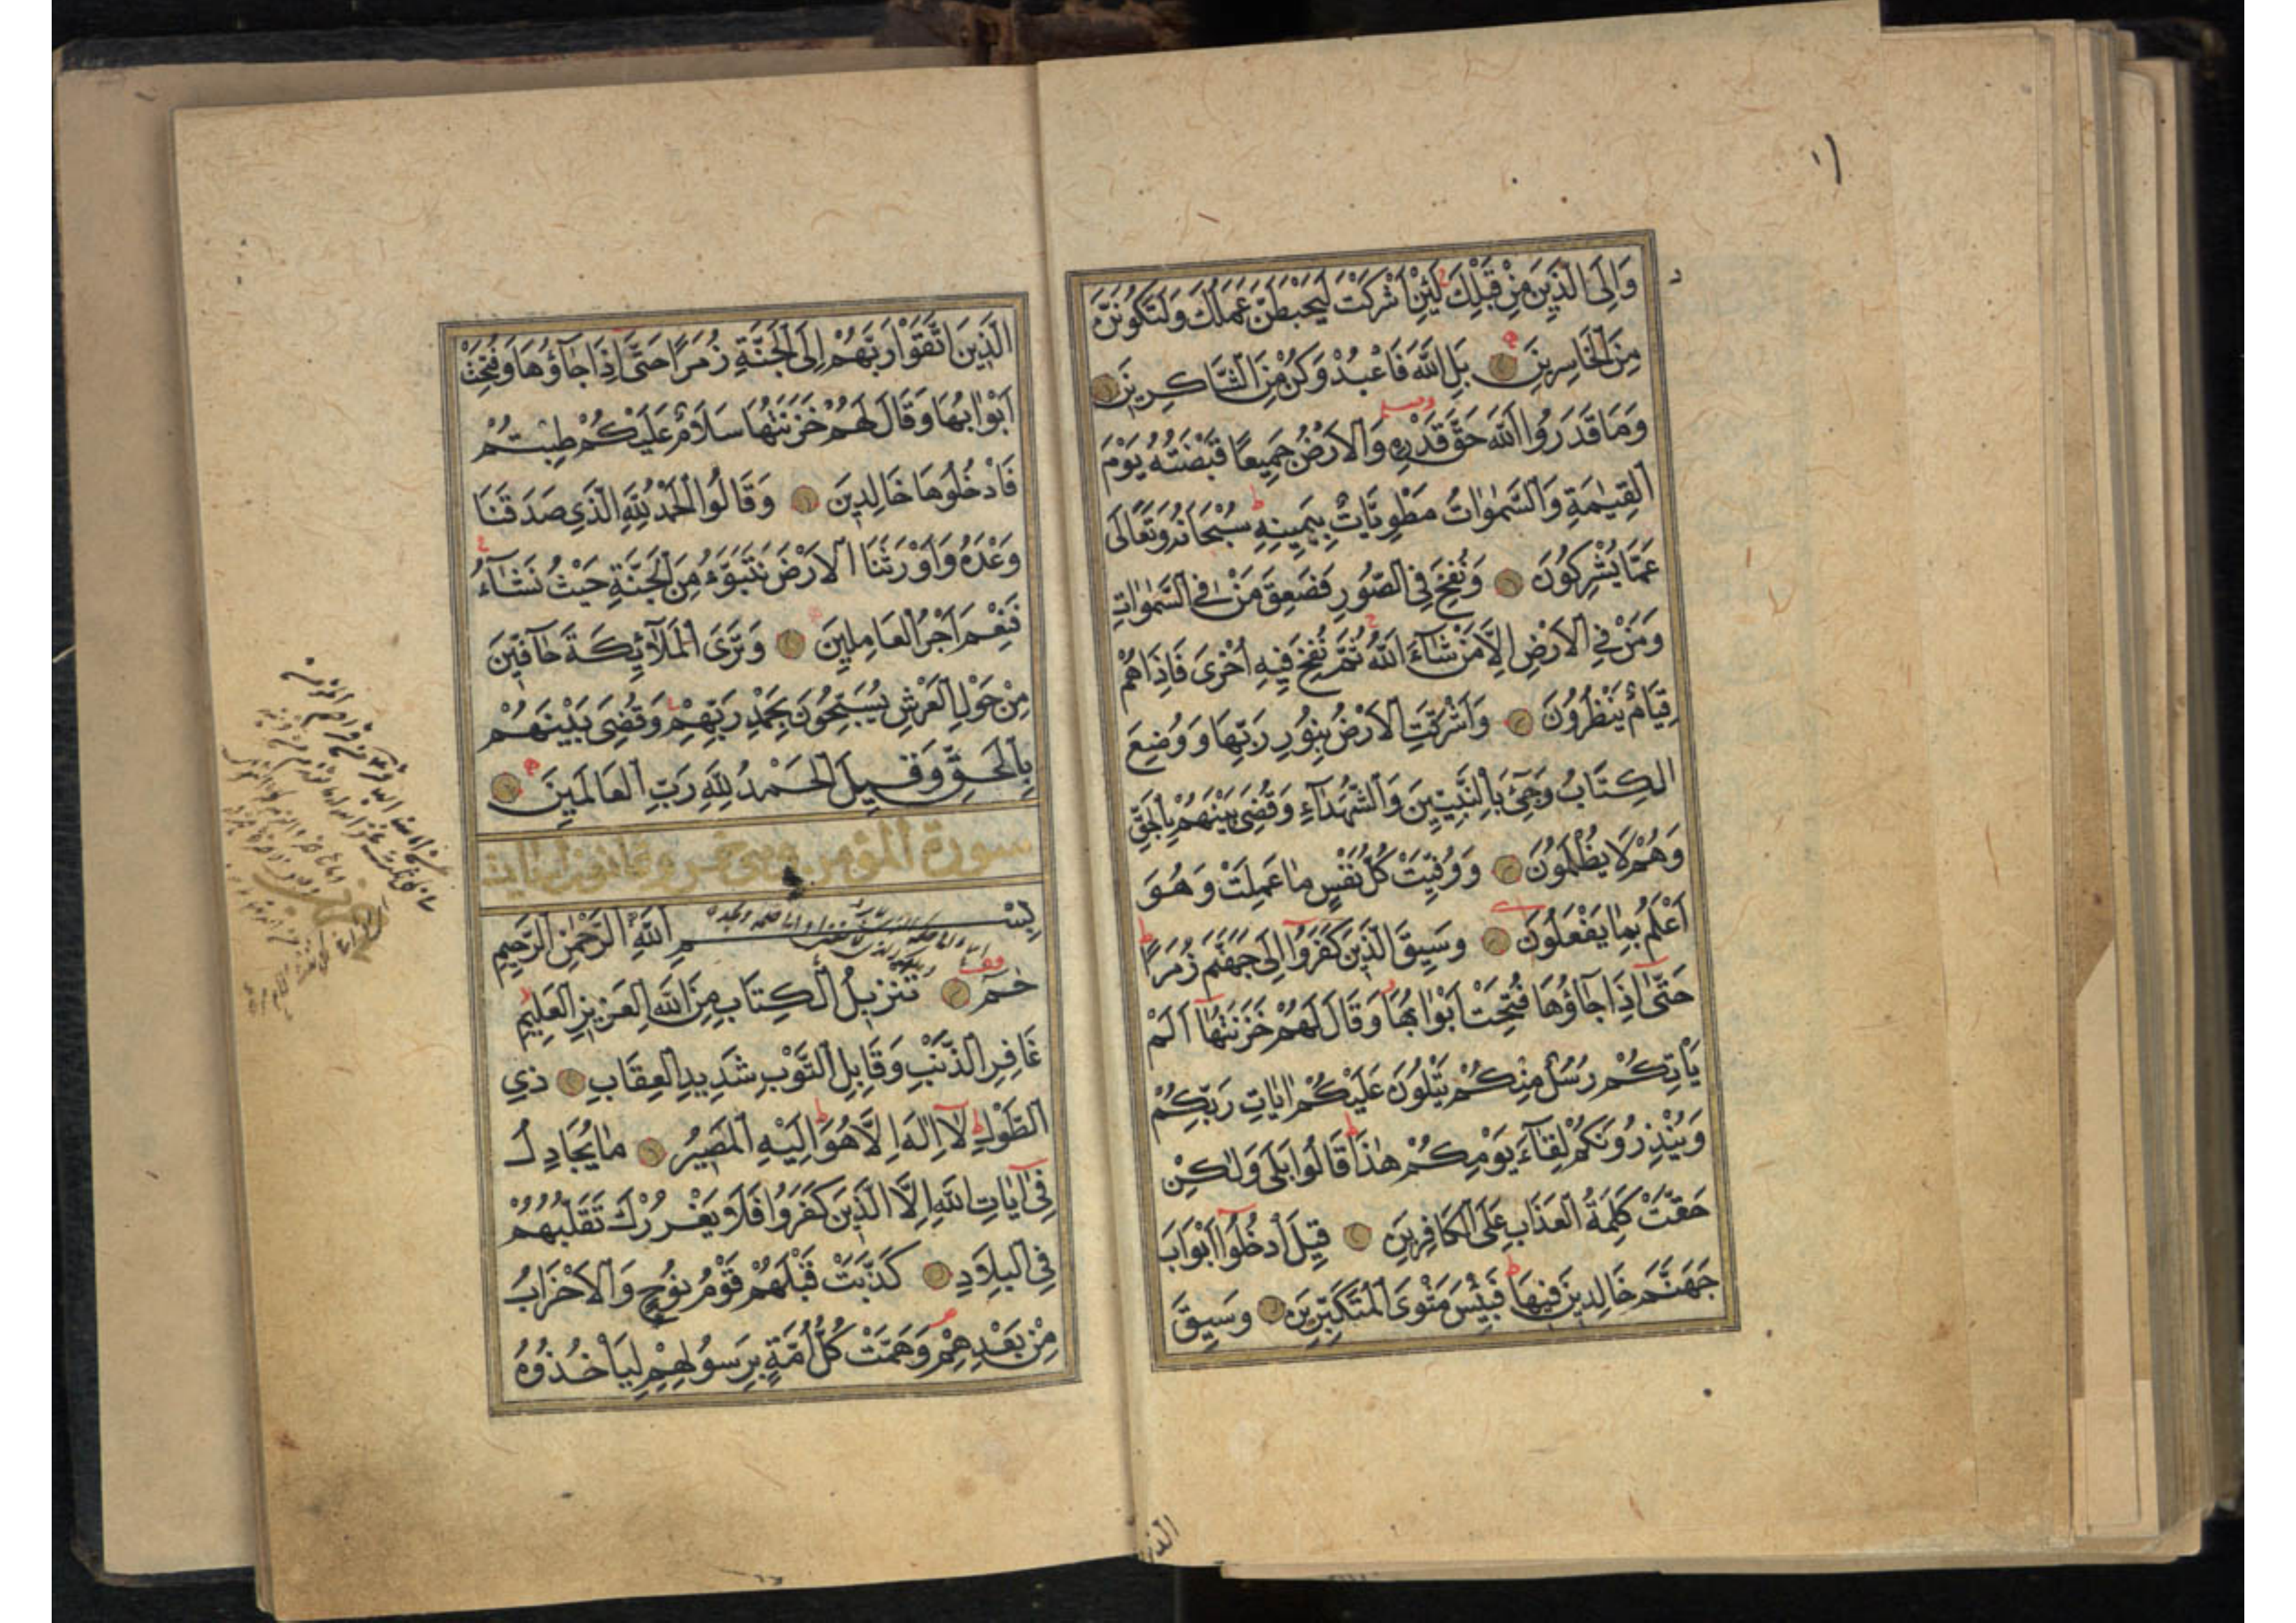 وَاِلَى الَّذِينَ مِنْ قَبْلِكَ لَئِنْ اَشْرَكْتَ لَيَحْبَطَنَّ عَمَلُكَ وَلَتَكُونَنَّ
مِنَ الْخَاسِرِينَ بَلِ اللّٰهَ فَاعْبُدْ وَكُنْ مِنَ الشَّاكِرِينَ
وَمَا قَدَرُوا اللّٰهَ حَقَّ قَدْرِهِ وَالْاَرْضُ جَمِيعًا قَبْضَتُهُ يَوْمَ
الْقِيٰمَةِ وَالسَّمٰوَاتُ مَطْوِيَّاتٌ بِيَمِينِهِ سُبْحَانَهُ وَتَعَالَى
عَمَّا يُشْرِكُونَ وَنُفِخَ فِي الصُّورِ فَصَعِقَ مَنْ فِي السَّمٰوَاتِ
وَمَنْ فِي الْاَرْضِ اِلَّا مَنْ شَآءَ اللّٰهُ ثُمَّ نُفِخَ فِيهِ اُخْرَى فَاِذَا هُمْ
قِيَامٌ يَنْظُرُونَ وَاَشْرَقَتِ الْاَرْضُ بِنُورِ رَبِّهَا وَوُضِعَ
الْكِتَابُ وَجِيءَ بِالنَّبِيِّينَ وَالشُّهَدَآءِ وَقُضِيَ بَيْنَهُمْ بِالْحَقِّ
وَهُمْ لَا يُظْلَمُونَ وَوُفِّيَتْ كُلُّ نَفْسٍ مَا عَمِلَتْ وَهُوَ
اَعْلَمُ بِمَا يَفْعَلُونَ وَسِيقَ الَّذِينَ كَفَرُوا اِلَى جَهَنَّمَ زُمَرًا
حَتَّى اِذَا جَآؤُهَا فُتِحَتْ اَبْوَابُهَا وَقَالَ لَهُمْ خَزَنَتُهَا اَلَمْ
يَاْتِكُمْ رُسُلٌ مِنْكُمْ يَتْلُونَ عَلَيْكُمْ اٰيَاتِ رَبِّكُمْ
وَيُنْذِرُونَكُمْ لِقَآءَ يَوْمِكُمْ هٰذَا قَالُوا بَلَى وَلٰكِنْ
حَقَّتْ كَلِمَةُ الْعَذَابِ عَلَى الْكَافِرِينَ قِيلَ ادْخُلُوا اَبْوَابَ
جَهَنَّمَ خَالِدِينَ فِيهَا فَبِئْسَ مَثْوَى الْمُتَكَبِّرِينَ وَسِيقَ
الذين
الَّذِينَ اتَّقَوْا رَبَّهُمْ اِلَى الْجَنَّةِ زُمَرًا حَتَّى اِذَا جَآؤُهَا وَفُتِحَتْ
اَبْوَابُهَا وَقَالَ لَهُمْ خَزَنَتُهَا سَلَامٌ عَلَيْكُمْ طِبْتُمْ
فَادْخُلُوهَا خَالِدِينَ وَقَالُوا الْحَمْدُ لِلّٰهِ الَّذِي صَدَقَنَا
وَعْدَهُ وَاَوْرَثَنَا الْاَرْضَ نَتَبَوَّءُ مِنَ الْجَنَّةِ حَيْثُ نَشَآءُ
فَنِعْمَ اَجْرُ الْعَامِلِينَ وَتَرَى الْمَلٰٓئِكَةَ حَآفِّينَ
مِنْ حَوْلِ الْعَرْشِ يُسَبِّحُونَ بِحَمْدِ رَبِّهِمْ وَقُضِيَ بَيْنَهُمْ
بِالْحَقِّ وَقِيلَ الْحَمْدُ لِلّٰهِ رَبِّ الْعَالَمِينَ
سورة المؤمن
بِسْمِ اللّٰهِ الرَّحْمٰنِ الرَّحِيمِ
حٰمٓ تَنْزِيلُ الْكِتَابِ مِنَ اللّٰهِ الْعَزِيزِ الْعَلِيمِ
غَافِرِ الذَّنْبِ وَقَابِلِ التَّوْبِ شَدِيدِ الْعِقَابِ ذِي
الطَّوْلِ لَآ اِلٰهَ اِلَّا هُوَ اِلَيْهِ الْمَصِيرُ مَا يُجَادِلُ
فِي اٰيَاتِ اللّٰهِ اِلَّا الَّذِينَ كَفَرُوا فَلَا يَغْرُرْكَ تَقَلُّبُهُمْ
فِي الْبِلَادِ كَذَّبَتْ قَبْلَهُمْ قَوْمُ نُوحٍ وَالْاَحْزَابُ
مِنْ بَعْدِهِمْ وَهَمَّتْ كُلُّ اُمَّةٍ بِرَسُولِهِمْ لِيَاْخُذُوهُ